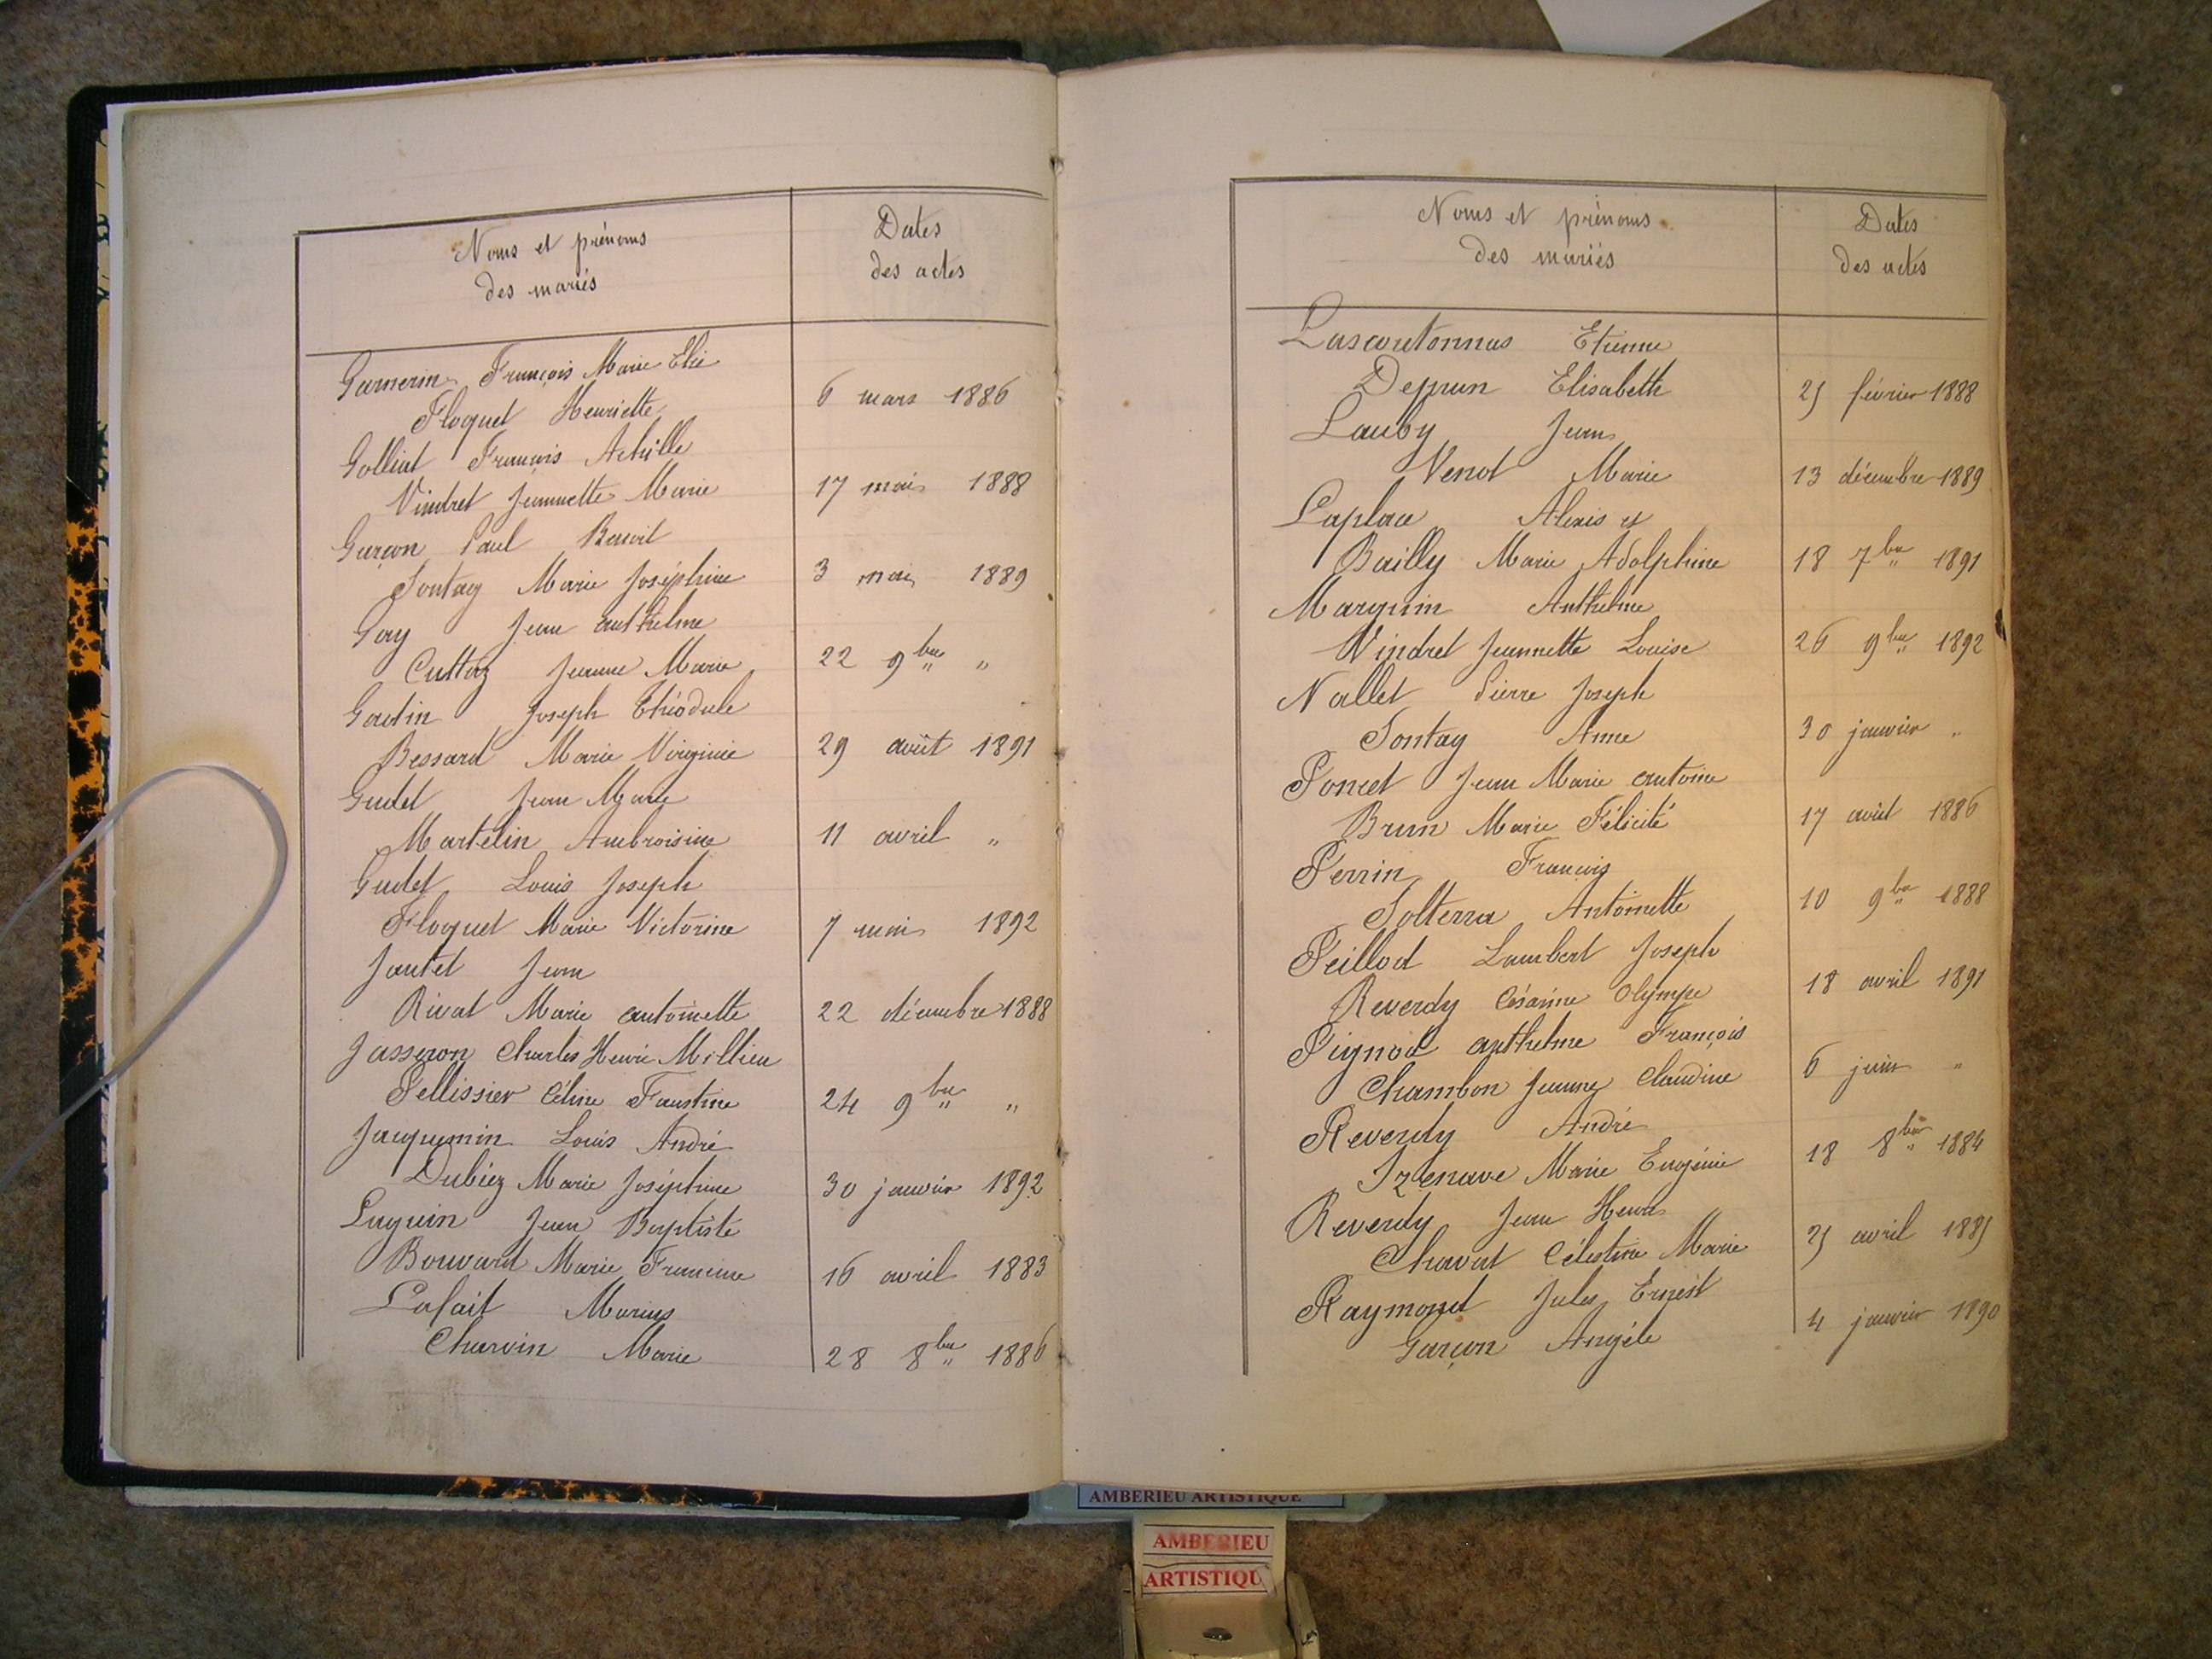 Noms et prénoms
des mariés
Dates
des actes
Garnerin François Marie Elie
Floquet Henriette 6 mars 1886
Golliat François Achille
Vindret Jeannette Marie 17 mai 1888
Garçon Paul Benoit
Sontag Marie Joséphine 3 mai 1889
Gay Jean anthelme
Cuttaz Jeanne Marie 22 9bre "
Goutin Joseph Théodule
Bessard Marie Virginie 29 août 1891
Gudet Jean Marie
Martelin Ambroisine 11 avril "
Gudet Louis Joseph
Floquet Marie Victorine 7 mai 1892
Jantet Jean
Rivat Marie antoinette 22 décembre 1888
Jasseron Charles Henri Millieu
Pellissier Céline Faustine 24 9bre "
Jacquemin Louis André
Dubiez Marie Joséphine 30 janvier 1892
Luquin Jean Baptiste
Bouvard Marie Francine 16 avril 1883
Lafait Marius
Charvin Marie 28 8bre 1886
Noms et prénoms
des mariés
Dates
des actes
Lascoutounas Etienne
Deprun Elisabeth 25 février 1888
Lauby Jean
Venot Marie 13 décembre 1889
Laplace Alexis et
Bailly Marie Adolphine 18 7bre 1891
Marguin Anthelme
Vindret Jeannette Louise 26 9bre 1892
Nallet Pierre Joseph
Sontag Anne 30 janvier "
Poncet Jean Marie antoine
Brun Marie Félicité 17 août 1886
Perrin François
Solterra Antoinette 10 9bre 1888
Peillod Lambert Joseph
Reverdy Césarine Olympe 18 avril 1891
Pignod anthelme François
Chambon Jeanne Claudine 6 juin "
Reverdy André
Marie Eugénie 18 8bre 1884
Reverdy Jean Henri
Chavat Célestine Marie 25 avril 1885
Raymond Jules Ernest
Garçon Angèle 4 janvier 1890
AMBERIEU ARTISTIQUE
AMBERIEU
ARTISTIQU